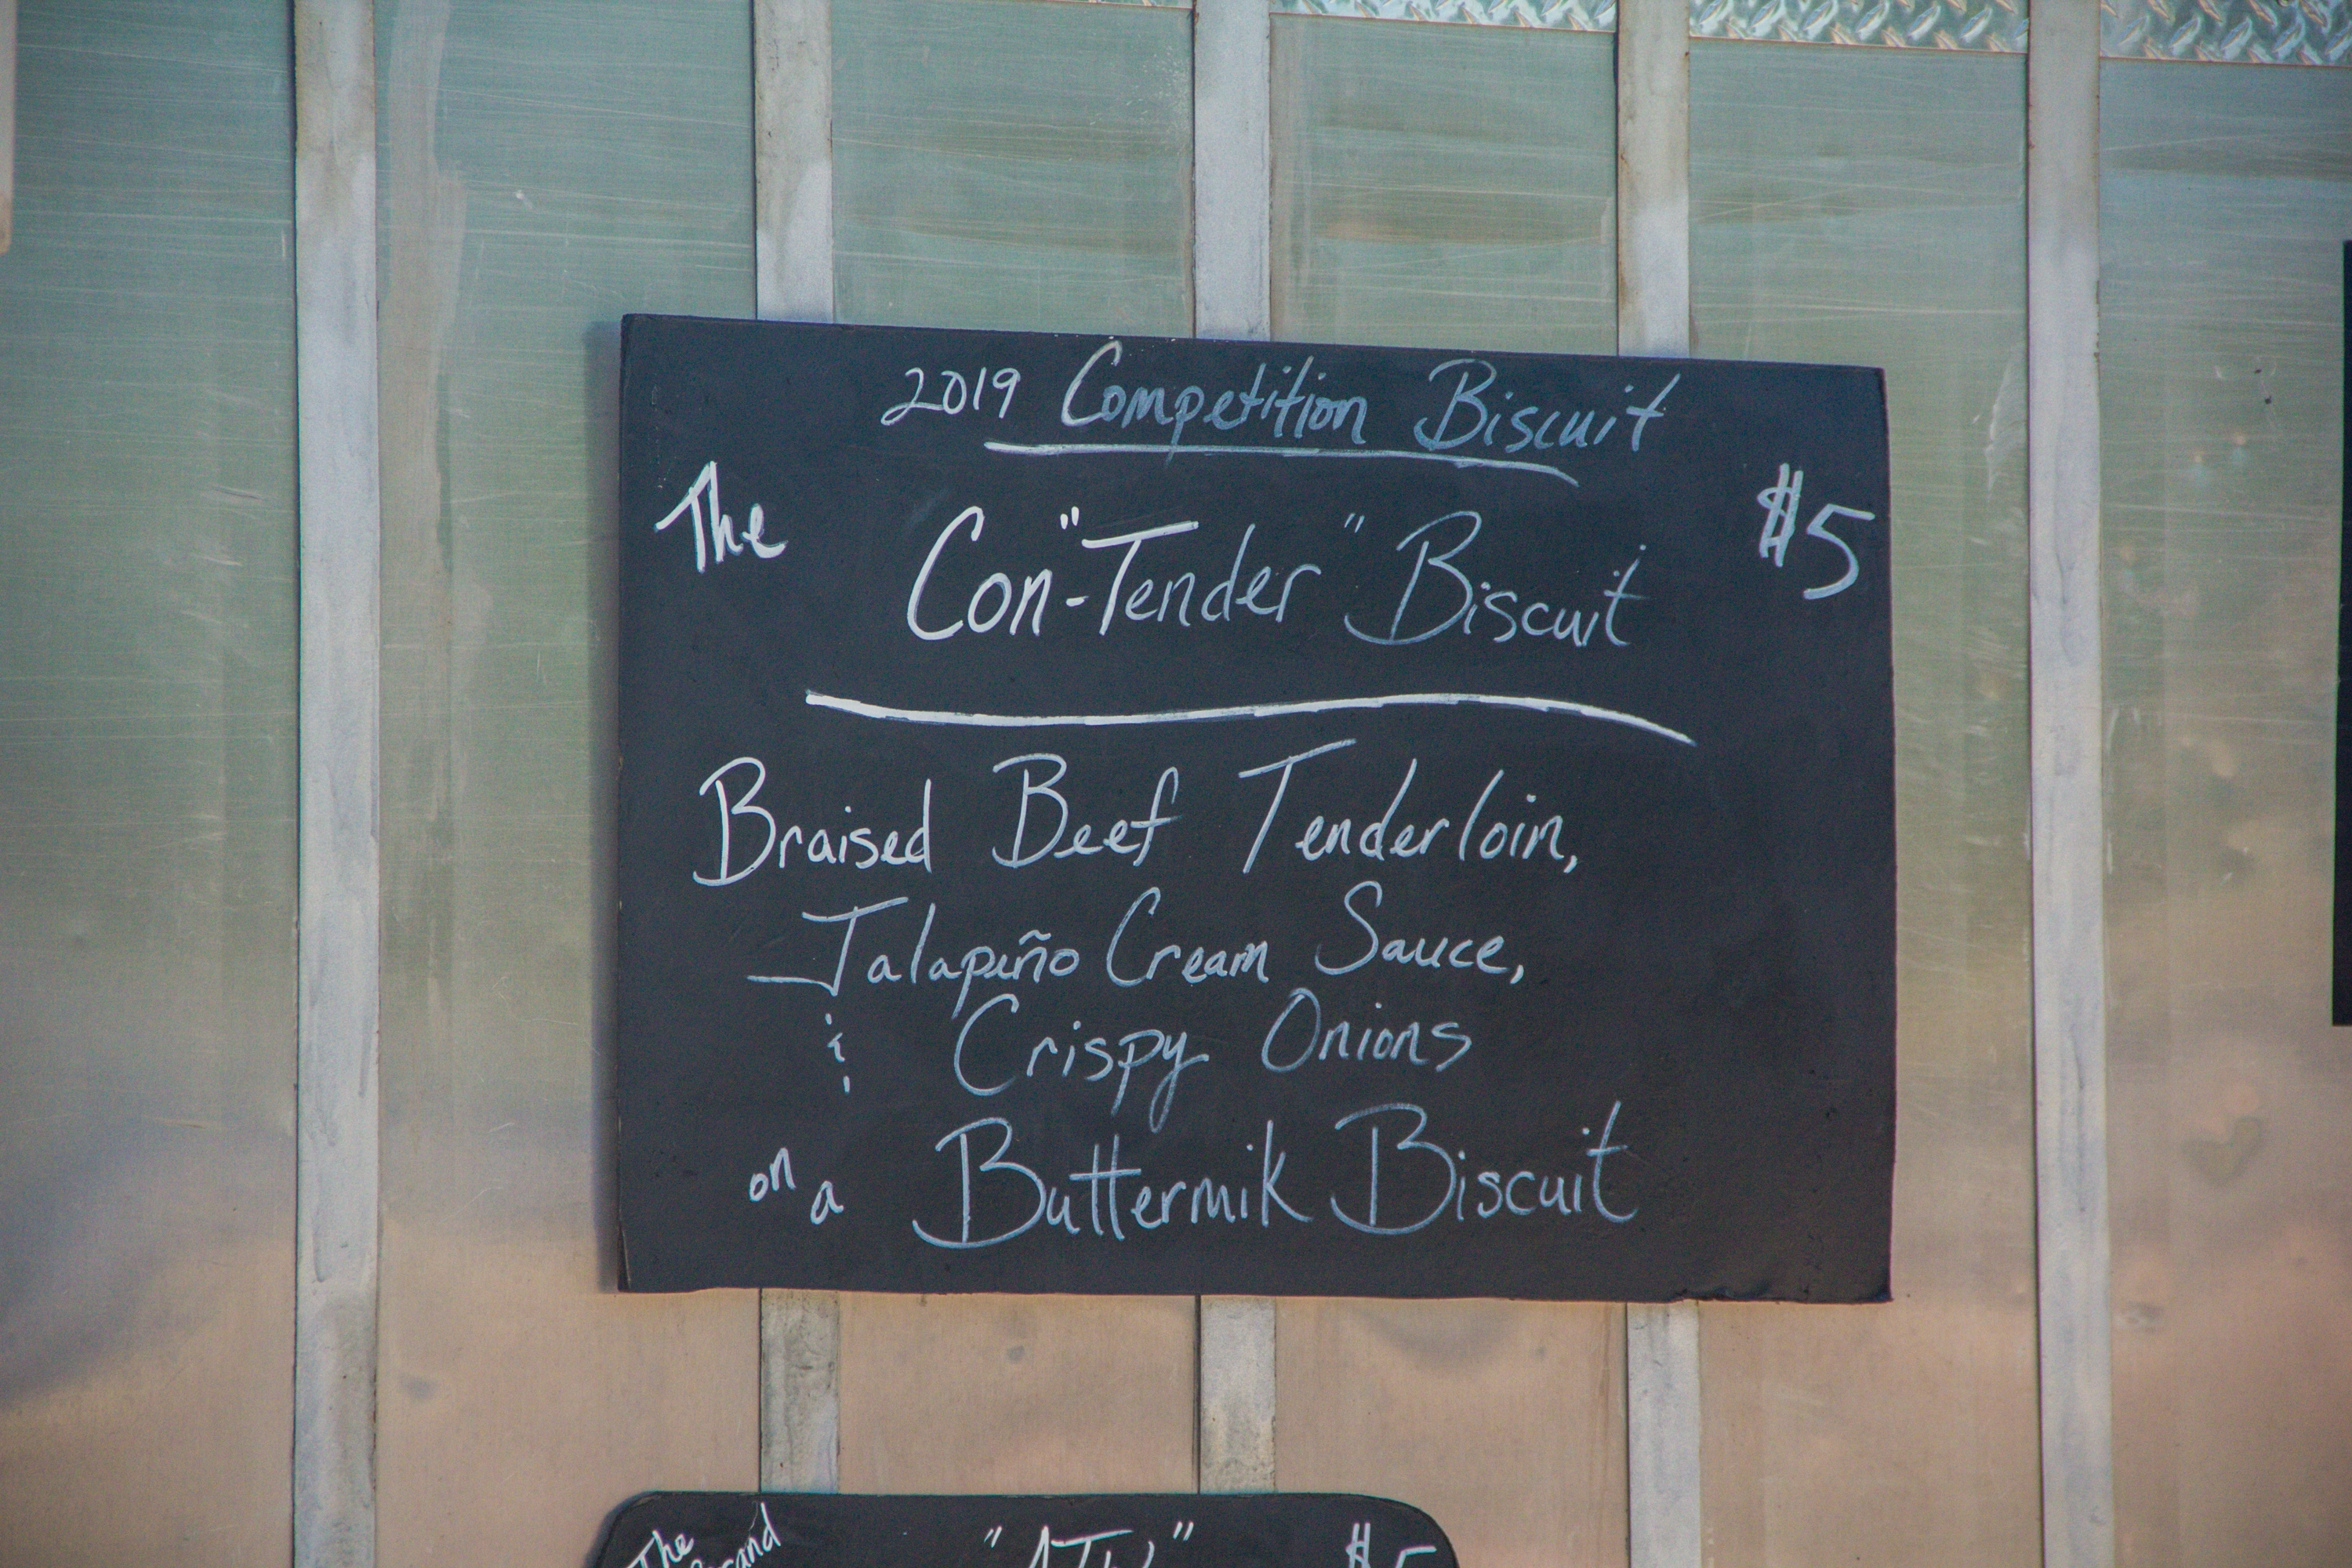 2019 Competition Biscuit
The Con-"Tender" Biscuit $5
Braised Beef Tenderloin,
Jalapiño Cream Sauce,
& Crispy Onions
on a Buttermik Biscuit
The "ATW" $5